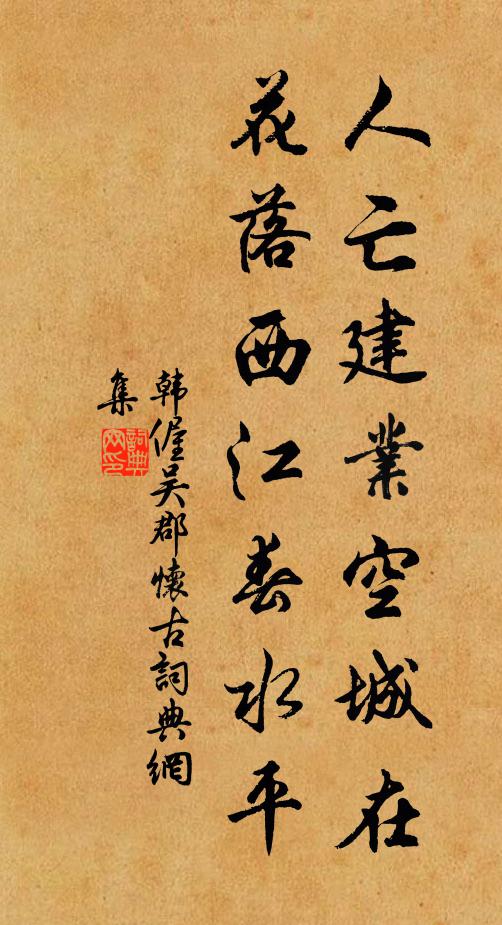 人亡建業空城在
花落西江春水平
韩偓吴郡懷古詞典網
集
詞典
网印